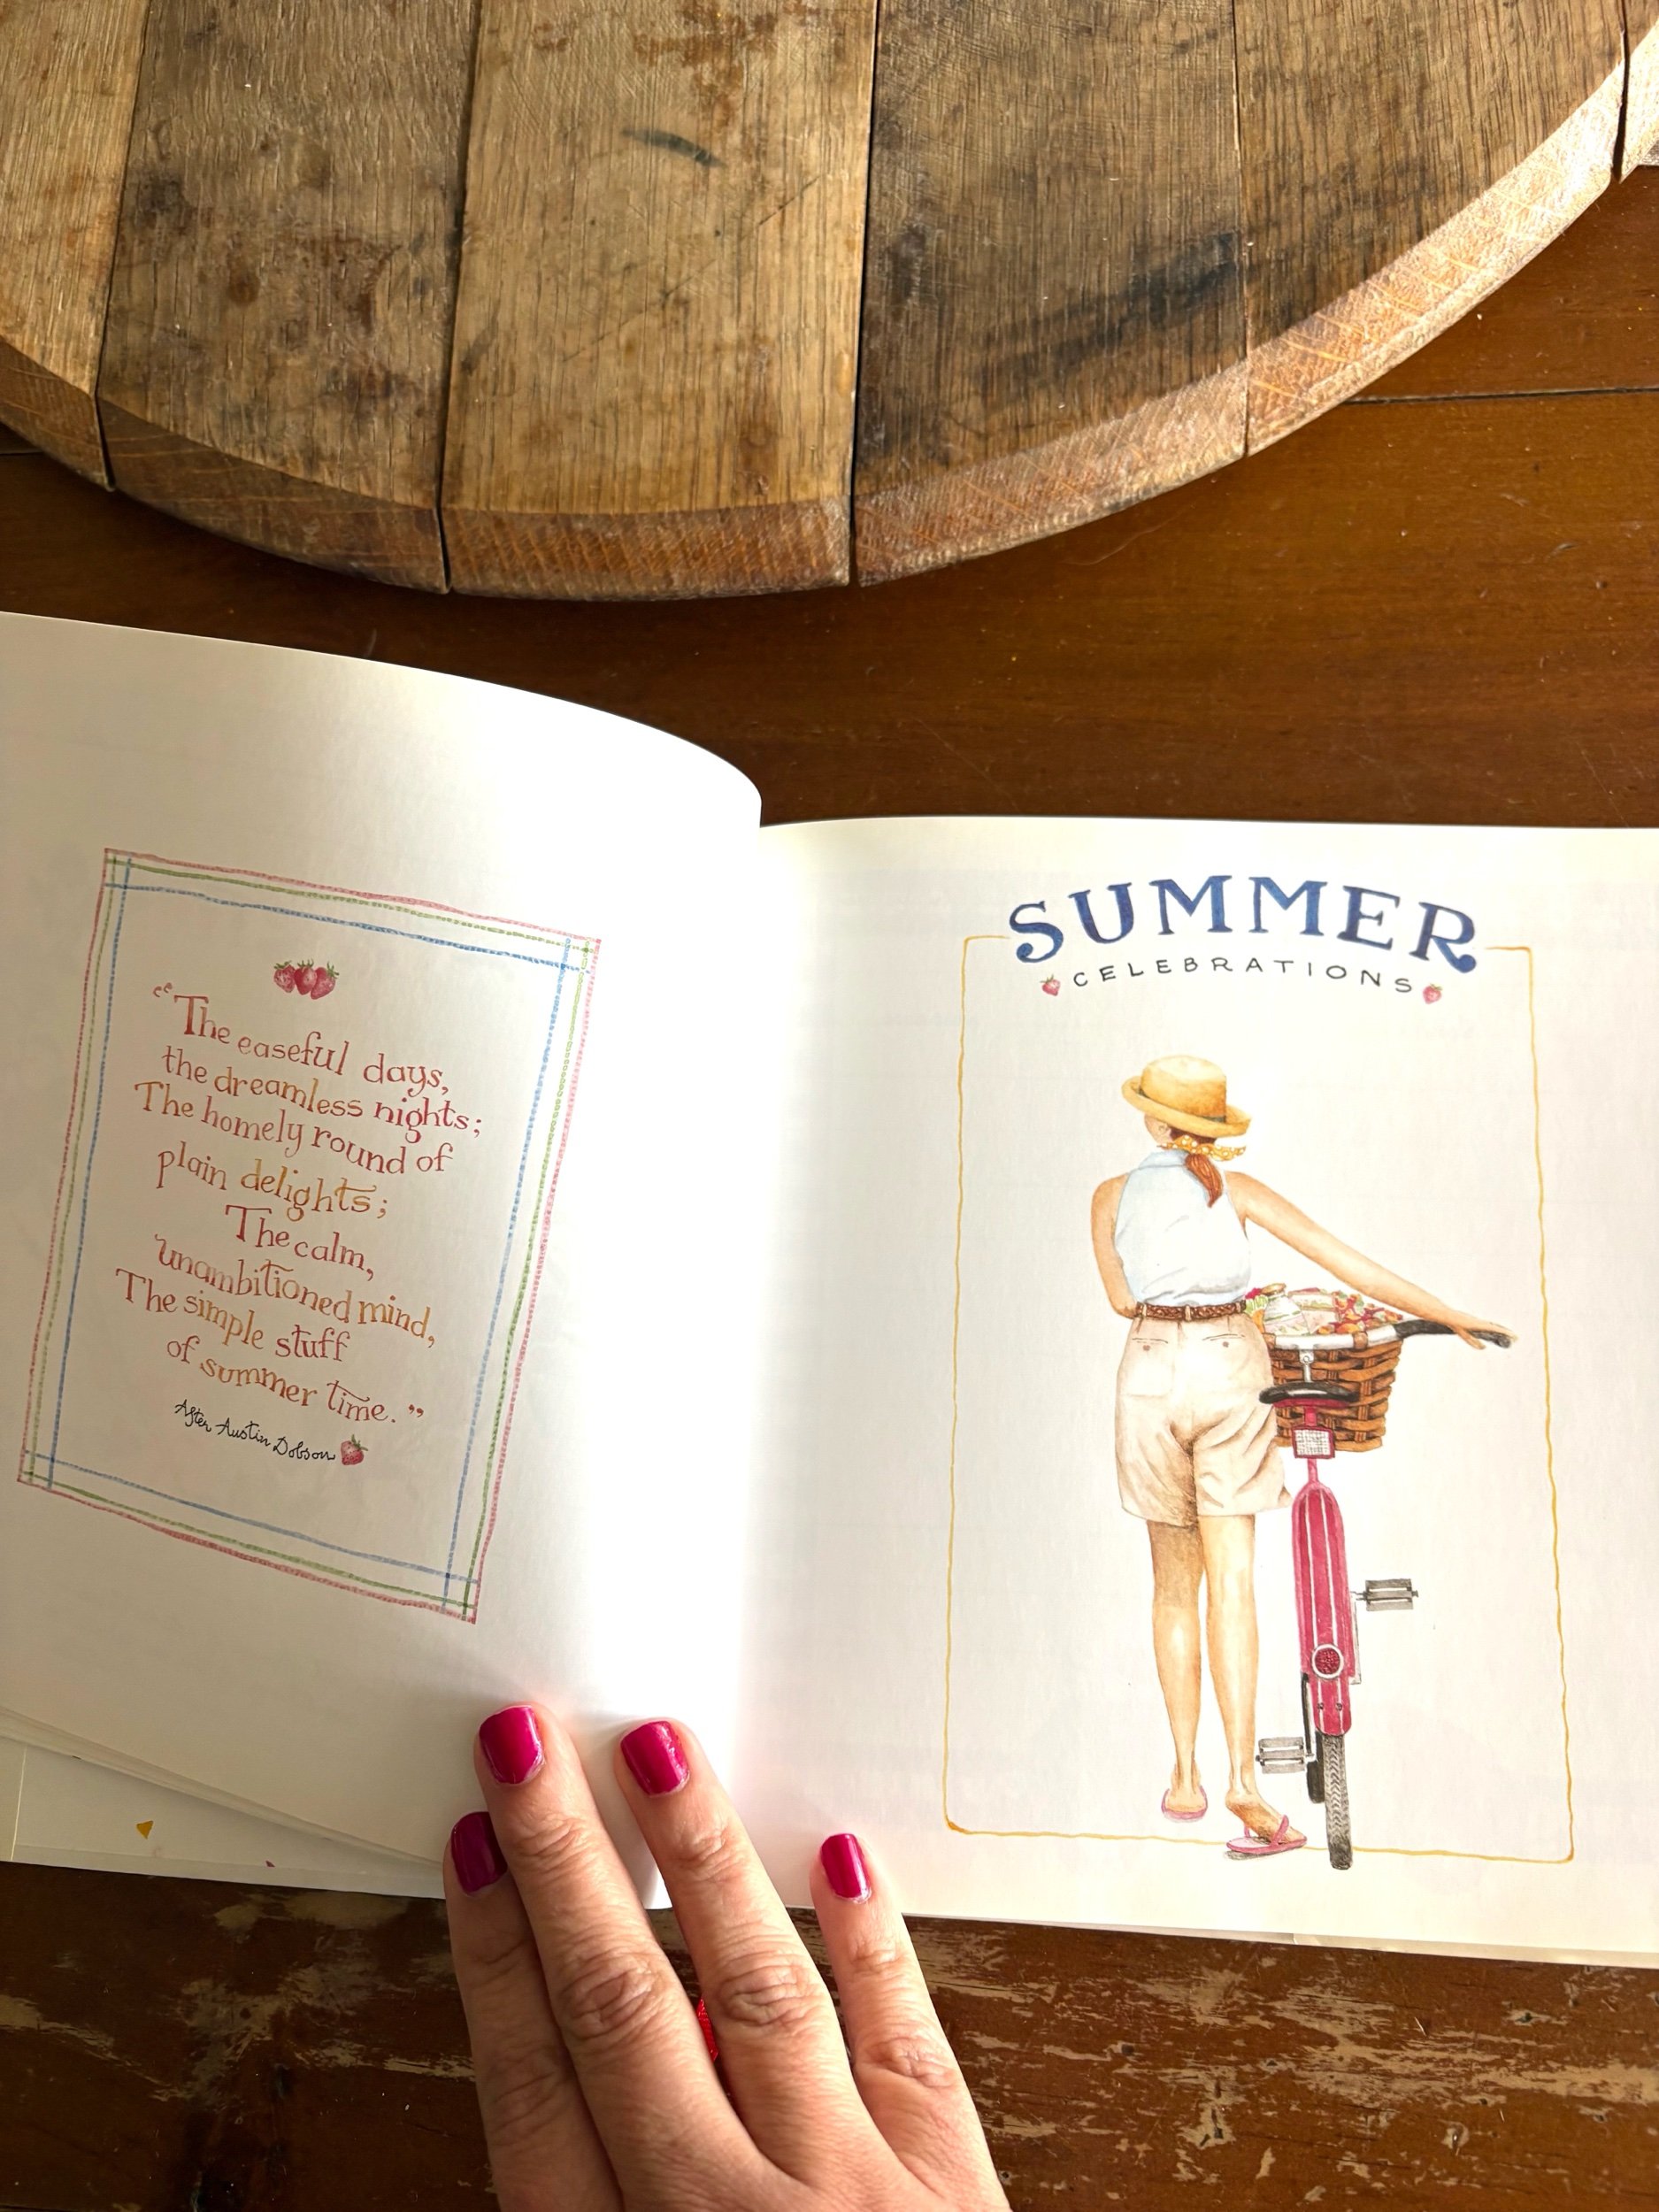 “The easeful days,
the dreamless nights;
The homely round of
plain delights;
The calm,
unambitioned mind,
The simple stuff
of summer time.”
After Austin Dobson
SUMMER
CELEBRATIONS